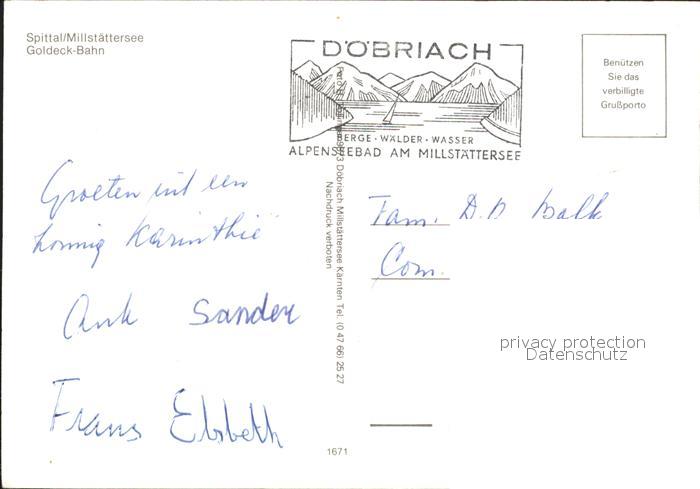 Spittal/Millstättersee
Goldeck-Bahn
DÖBRIACH
BERGE · WÄLDER · WASSER
ALPENSEEBAD AM MILLSTÄTTERSEE
Benützen
Sie das
verbilligte
Grußporto
Groeten uit een
zonnig Karinthië
Ank Sander
Frans Elsbeth
Döbriach Millstättersee Kärnten Tel. (0 47 66) 25 27
Nachdruck verboten
Fam. D. D Balk
Com.
privacy protection
Datenschutz
1671